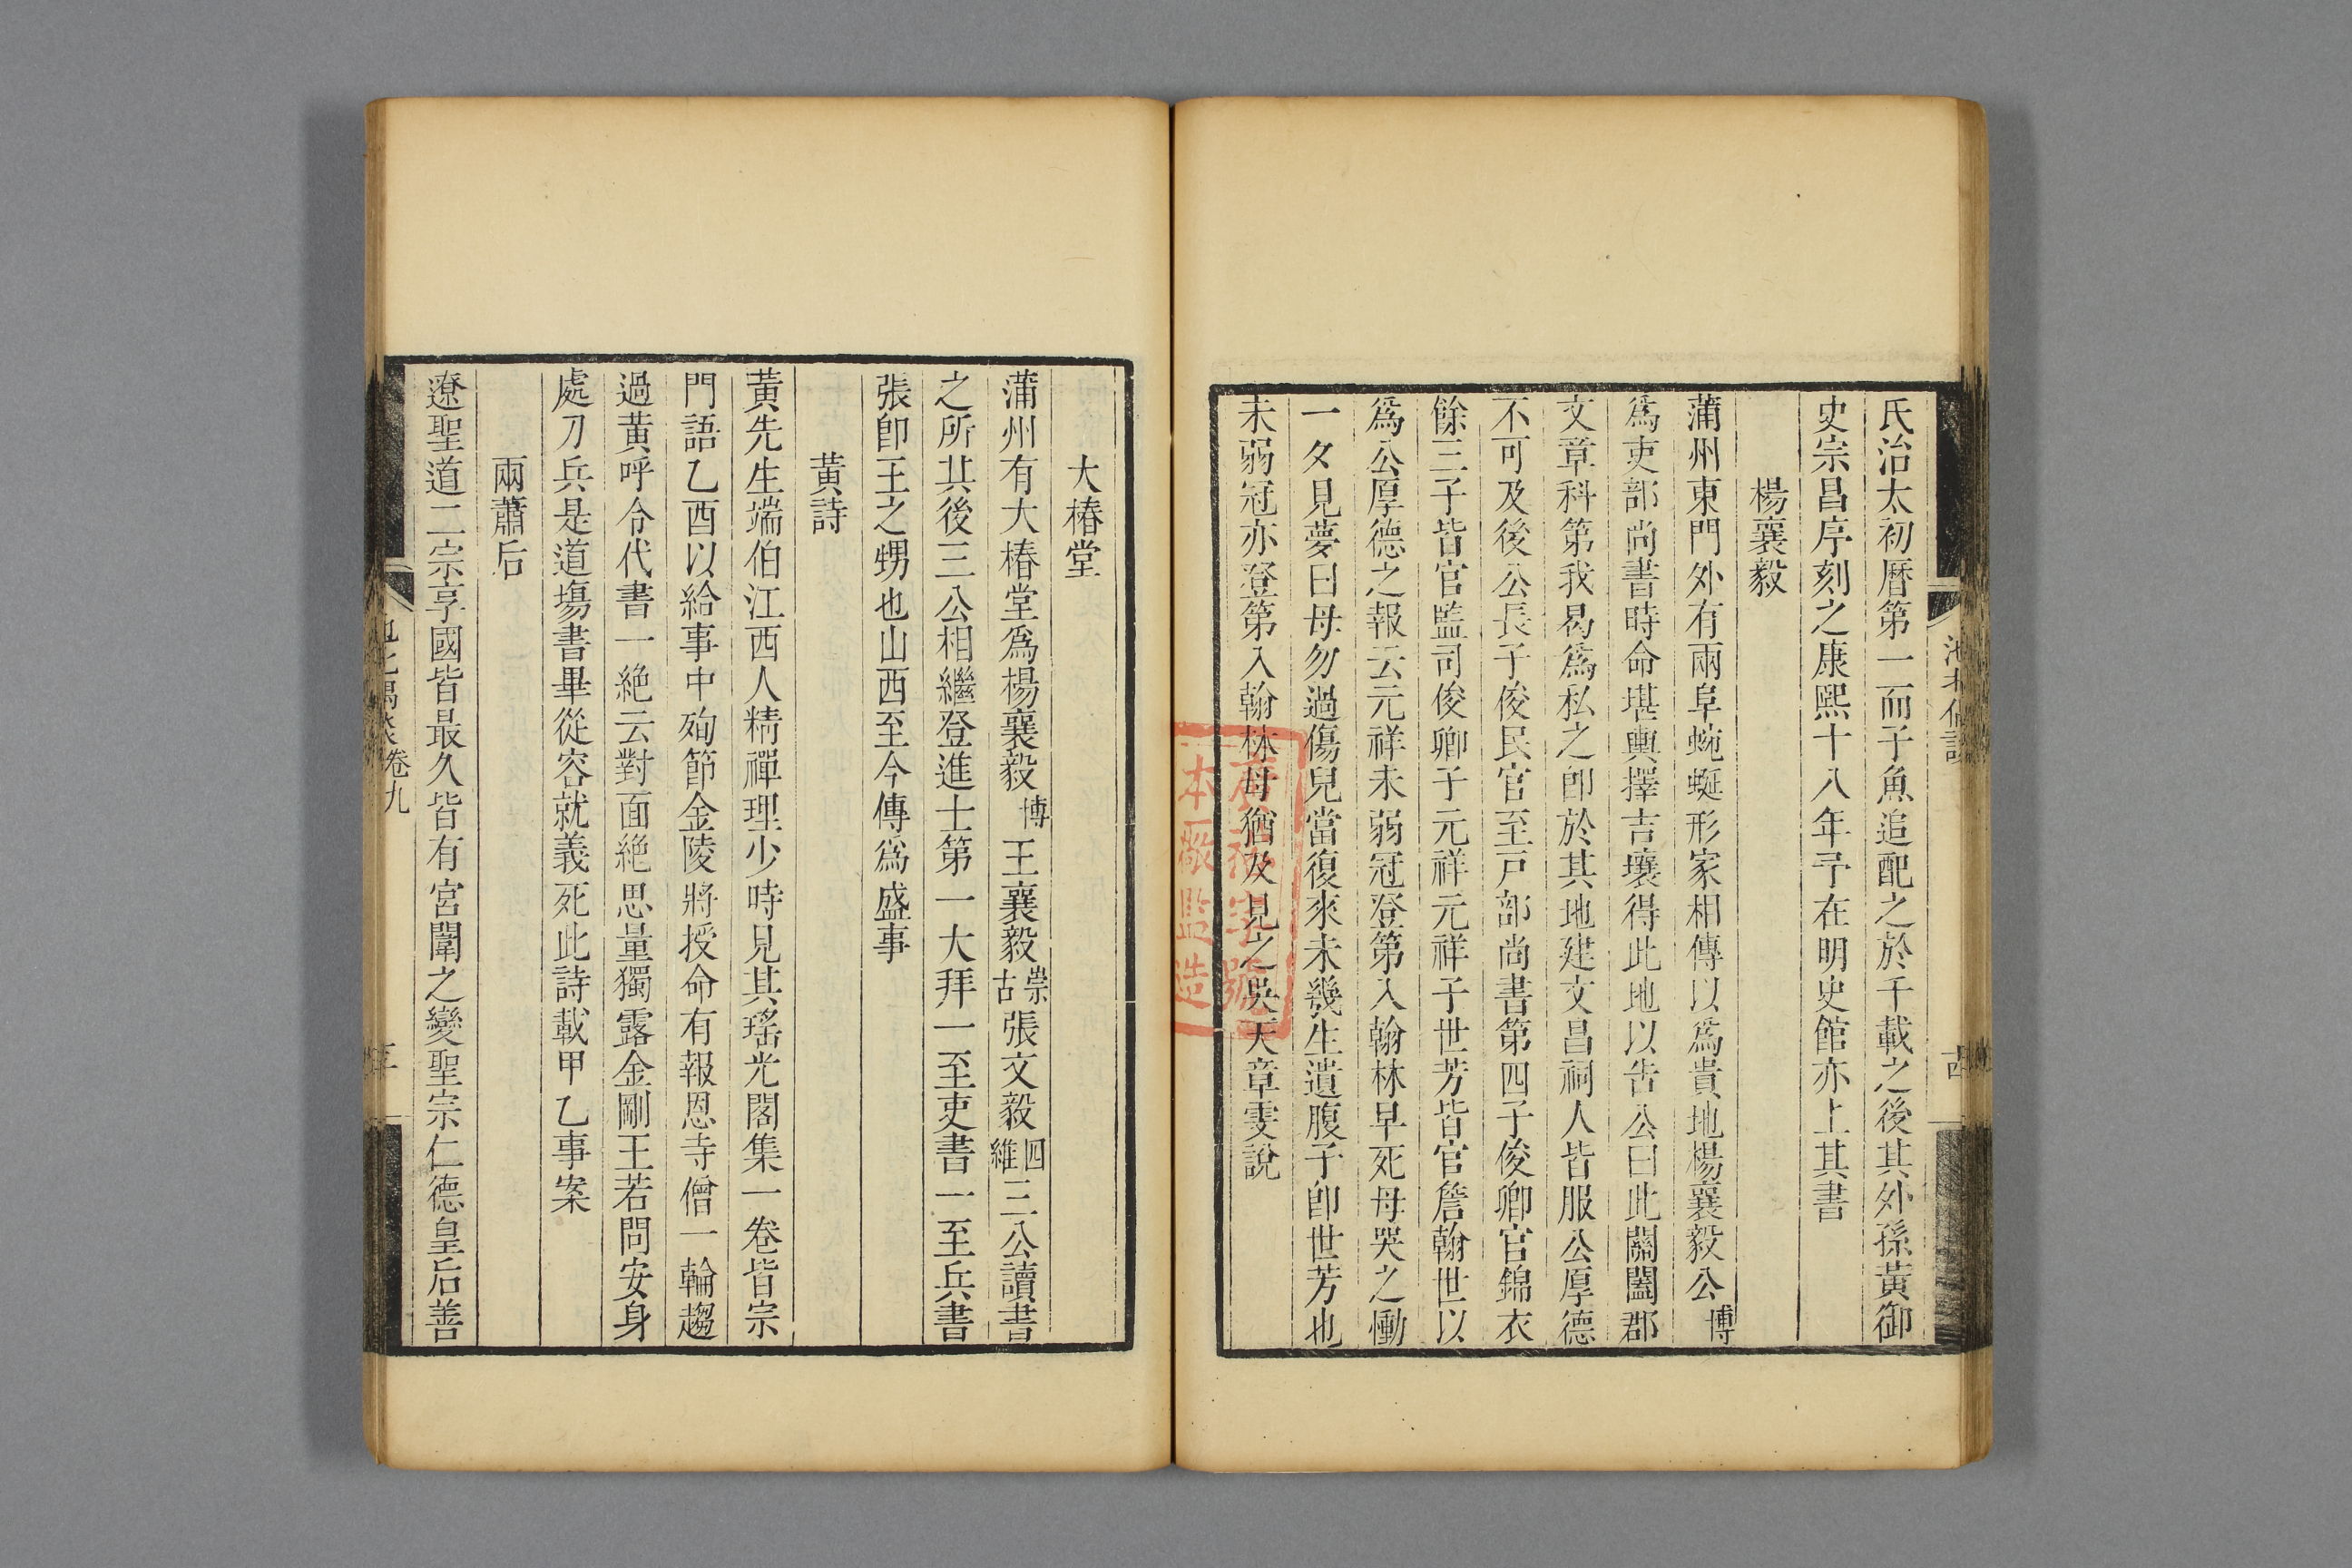 氏治太初曆第一而子魚追配之於千載之後其外孫黃御
史宗昌序刻之康熙十八年予在明史館亦上其書
楊襄毅
蒲州東門外有兩阜蜿蜒形家相傳以爲貴地楊襄毅公博
爲吏部尚書時命堪輿擇吉壤得此地以告公曰此關闔郡
文章科第我曷爲私之卽於其地建文昌祠人皆服公厚德
不可及後公長子俊民官至戸部尚書第四子俊卿官錦衣
餘三子皆官監司俊卿子元祥元祥子世芳皆官詹翰世以
爲公厚德之報云元祥未弱冠登第入翰林早死母哭之慟
一夕見夢曰母勿過傷兒當復來未幾生遺腹子卽世芳也
未弱冠亦登第入翰林母猶及見之吳天章雯說
大椿堂
蒲州有大椿堂爲楊襄毅博王襄毅崇古張文毅四維三公讀書
之所其後三公相繼登進士第一大拜一至吏書一至兵書
張卽王之甥也山西至今傳爲盛事
黃詩
黃先生端伯江西人精禪理少時見其瑤光閣集一卷皆宗
門語乙酉以給事中殉節金陵將授命有報恩寺僧一輪趨
過黃呼令代書一絶云對面絶思量獨露金剛王若問安身
處刀兵是道塲書畢從容就義死此詩載甲乙事案
兩蕭后
遼聖道二宗享國皆最久皆有宮闈之變聖宗仁德皇后善
卷九